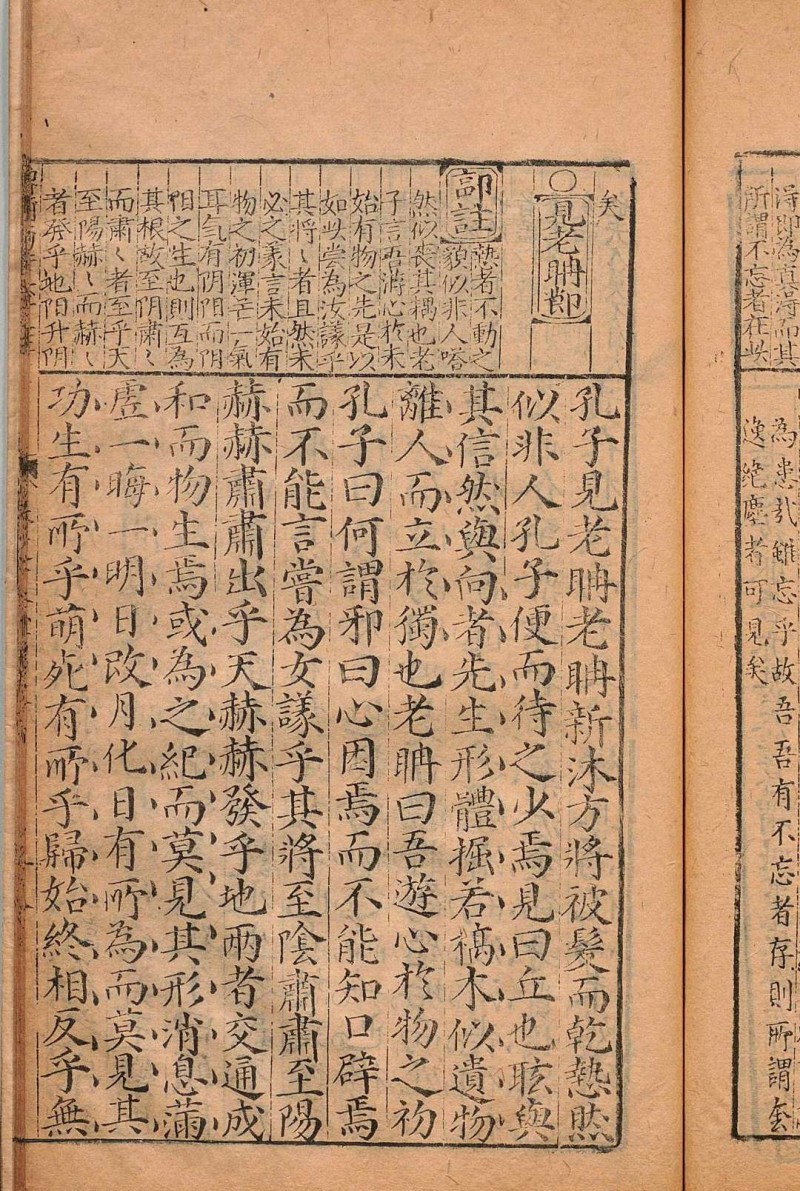 得即為真得而其
所謂不忘者在此
為患哉雖忘乎故吾吾有不忘者存則所謂奔
逸絕塵者可見矣
矣
○見老聃節
註
慹者不動之
貌似非人嗒
然似喪其耦也老
子言吾游心於未
始有物之先是以
如此嘗為汝議乎
其將〻者且然未
必之辭言未始有
物之初渾芒一氣
耳气有阴阳而阴
阳之生也則互為
其根故至阴肅〻
而肅〻者至乎天
至陽赫〻而赫〻
者發乎地阳升阴
孔子見老聃老聃新沐方將被髮而乾慹然
似非人孔子便而待之少焉見曰丘也眩與
其信然與向者先生形體掘若槁木似遺物
離人而立於獨也老聃曰吾遊心於物之初
孔子曰何謂邪曰心因焉而不能知口辟焉
而不能言嘗為女議乎其將至陰肅肅至陽
赫赫肅肅出乎天赫赫發乎地兩者交通成
和而物生焉或為之紀而莫見其形消息滿
虛一晦一明日改月化日有所為而莫見其
功生有所乎萌死有所乎歸始終相反乎無